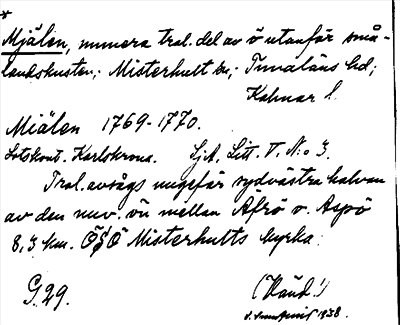 *
Mjälen, numera tral. del av ö utanför små-
landskusten; Misterhult sn; Tunaläns hd;
Kalmar l.
Miälen 1769-1770.
Lotskont. Karlskrona. SjA, Litt. V, N:o 3.
Tral. avsågs ungefär sydvästra halvan
av den nuv. ön mellan Äfrö o. Aspö
8,3 km. ÖSÖ Misterhults kyrka.
G. 29.
(Känd!)
1938.